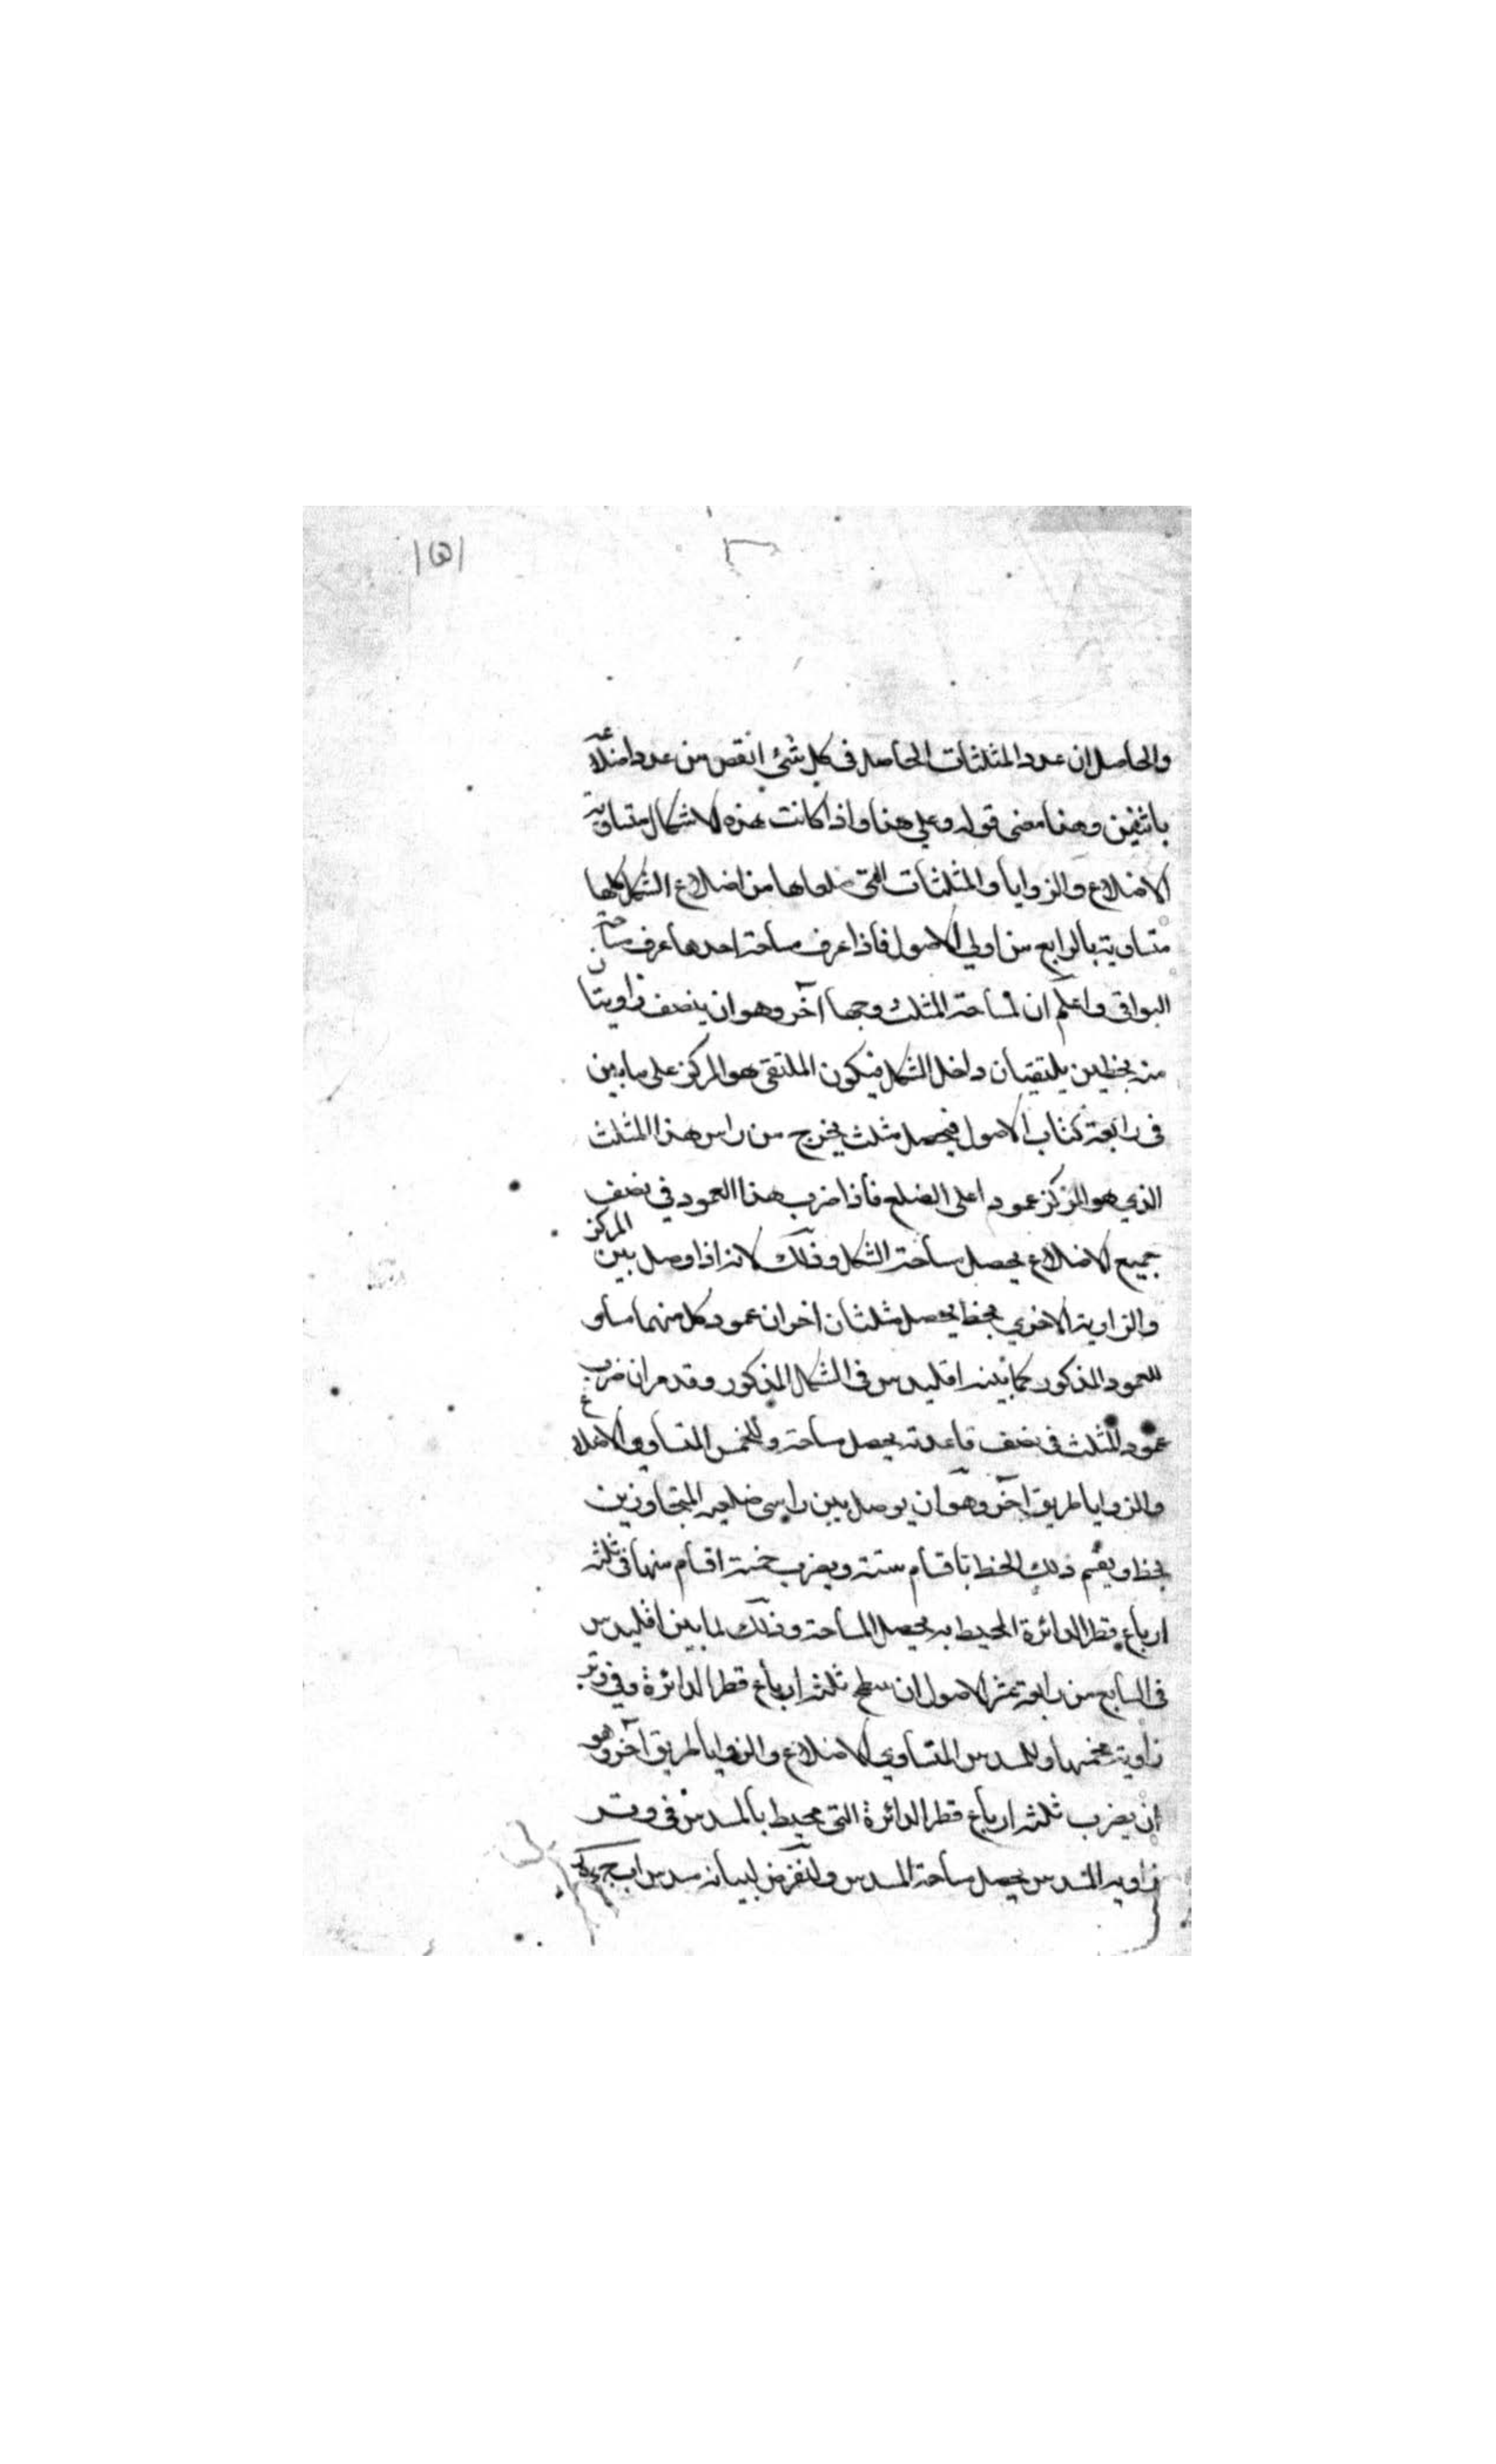 والحاصل ان عدد المثلثات الحاصل فى كل شئ انقص من عدد اضلاعه
باثنين وهذا معنى قوله وعلى هذا واذا كانت هذه الاشكال متساوية
الاضلاع والزوايا والمثلثات التى ضلعاها من اضلاع الشكل كلها
متساوية بالرابع من اولي الاصول فاذا عرف مساحة احدها عرف مساحة
البواقى واعلم ان لمساحة المثلث وجها آخر وهو ان ينصف زاويتان
منه بخطين يلتقيان داخل الشكل فيكون الملتقى هو المركز على ما بين
فى رابعة كتاب الاصول فيحصل مثلث يخرج من راس هذا المثلث
الذي هو المركز عمود اعلى الضلع فاذا ضرب هذا العمود في نصف
جميع الاضلاع يحصل مساحة الشكل وذلك لانه اذا وصل بين المركز
والزاوية الاخرى بخط يحصل مثلثان اخران عمود كل منهما مساو
للعمود المذكور كما بينه اقليدس فى الشكل المذكور وقد مر ان ضرب
عمود المثلث فى نصف قاعدته يحصل مساحته وللمخمس المتساوى الاضلاع
والزوايا طريق آخر وهو ان يوصل بين راسى ضلعيه المتجاوزين
بخط ويقسم ذلك الخط باقسام ستة ويضرب خمسة اقسام منها فى ثلثة
ارباع قطر الدائرة المحيط به يحصل المساحة وذلك لما بين اقليدس
فى السابع من رابعة عشر الاصول ان سطح ثلثة ارباع قطر الدائرة فى وتر
زاوية مخمسها وللمسدس المتساوي الاضلاع والزوايا طريق آخر وهو
ان يضرب ثلثة ارباع قطر الدائرة التى محيط بالمسدس فى وتر
زاوية المسدس يحصل مساحة المسدس ولنفرض لبيانه مسدس